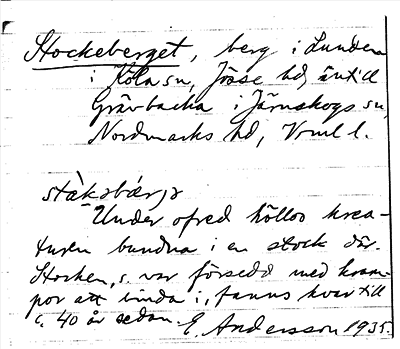 Stockeberget, berg i Lunden
i Köla sn, Jösse hd, intill
Grävbacka i Järnskogs sn,
Nordmarks hd, Vrml l.
Under ofred höllos krea-
turen bundna i en stock där.
Stocken, s. var försedd med kram-
por att binda i, fanns kvar till
c. 40 år sedan. E. Andersson 1935.